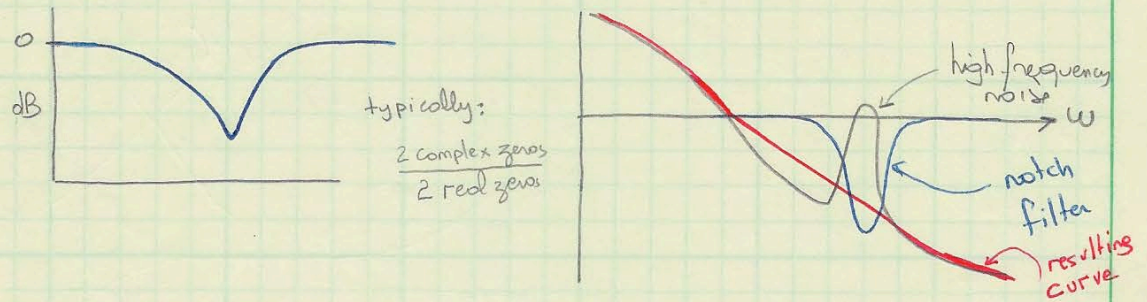 0
dB
typically:
2 complex zeros
2 real zeros
high frequency
noise
ω
notch
filter
resulting
curve